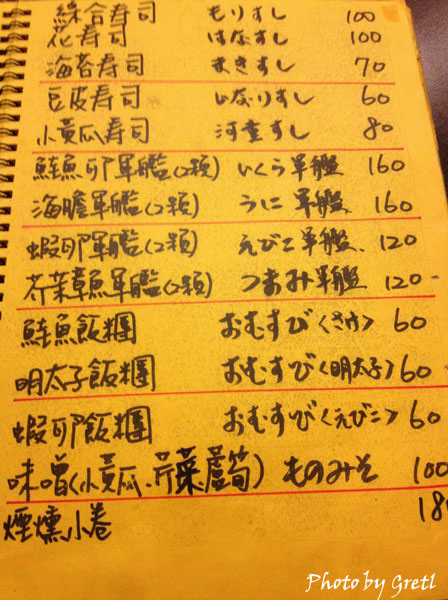 綜合寿司 もりすし 100
花寿司 はなすし 100
海苔寿司 まきすし 70
豆皮寿司 いなりすし 60
小黃瓜寿司 河童すし 80
鮭魚卵軍艦(2顆) いくら軍艦 160
海膽軍艦(2顆) うに軍艦 160
蝦卵軍艦(2顆) えびこ軍艦 120
芥茉章魚軍艦(2顆) つまみ軍艦 120
鮭魚飯糰 おむすび〈さけ〉 60
明太子飯糰 おむすび〈明太子〉 60
蝦卵飯糰 おむすび〈えびこ〉 60
味噌(小黃瓜、芥菜蘆筍) ものみそ 100
煙燻小卷 18
Photo by Gretl